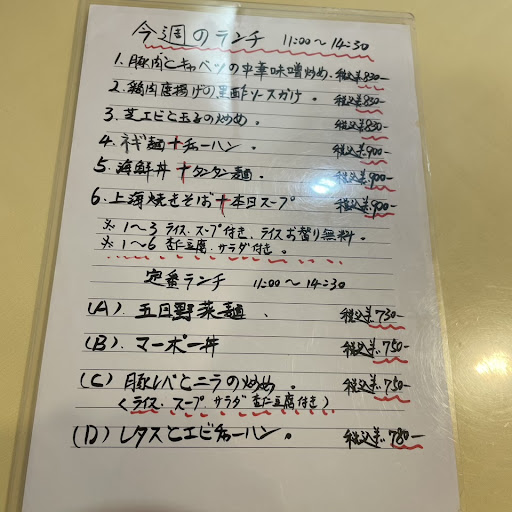 今週のランチ 11:00〜14:30
1. 豚肉とキャベツの中華味噌炒め. 税込¥830-
2. 鶏肉唐揚げの黒酢ソースがけ。 税込¥830-
3. 芝エビと玉子の炒め。 税込¥830-
4. ネギ麺+チャーハン。 税込¥900-
5. 海鮮丼+タンタン麺。 税込¥900-
6. 上海焼きそば+本日スープ 税込¥900-
※1〜3 ライス、スープ付き、ライスお替り無料。
※1〜6 杏仁豆腐、サラダ付き。
定番ランチ 11:00〜14:30
(A). 五目野菜麺、 税込¥730-
(B). マーボー丼 税込¥750-
(C) 豚レバとニラの炒め。 税込¥750-
(ライス、スープ、サラダ 杏仁豆腐付き)
(D) レタスとエビチャーハン。 税込¥780-